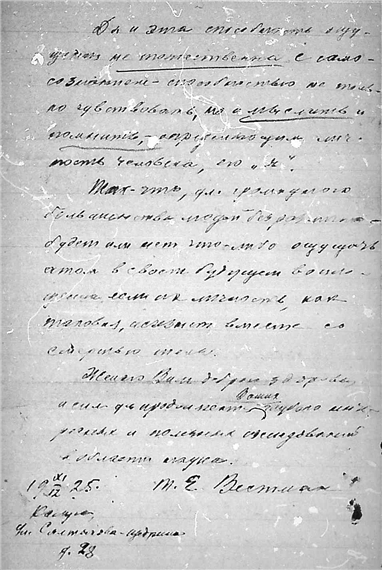 Да и эта способность ощу-
щения не тожественна с само-
сознанием – способностью не толь-
ко чувствовать, но и мыслить и
помнить, – определяющим лич-
ность человека, его „я".
Так-что, для громадного
большинства людей безразлично –
будет или нет что-либо ощущать
атом в своем будущем вопло-
щении, если их личность, как
таковая, исчезнет вместе со
смертью тела.
Желаю Вам доброго здоровья
и сил для продолжения Ваших глубоко инте-
ресных и полезных исследований
в области науки.
19 XI/IX 25. Т. Е. Вестман
Калуга,
ул. Салтыкова-Щедрина
д. 28